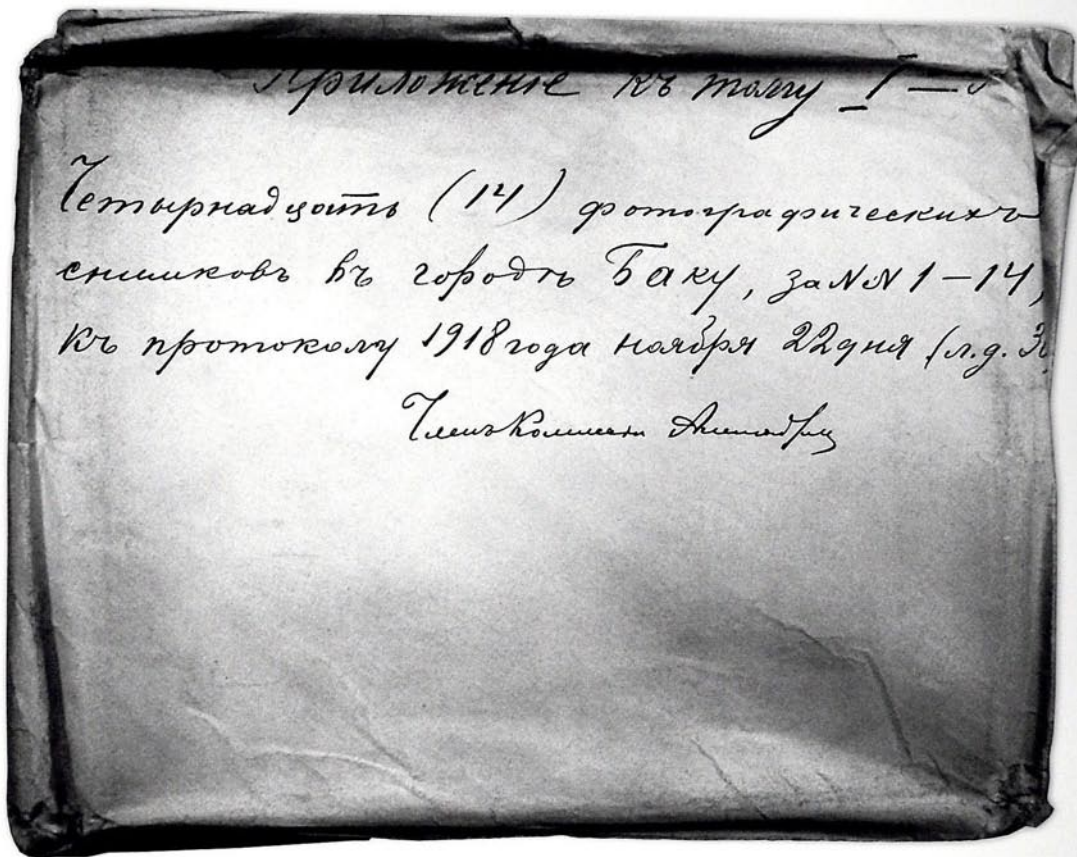 Приложенiе къ тому I —
Четырнадцать (14) фотографическихъ
снимковъ въ городѣ Баку, за NN 1–14,
къ протоколу 1918 года ноября 22 дня (л.д. 3
Членъ Комиссiи